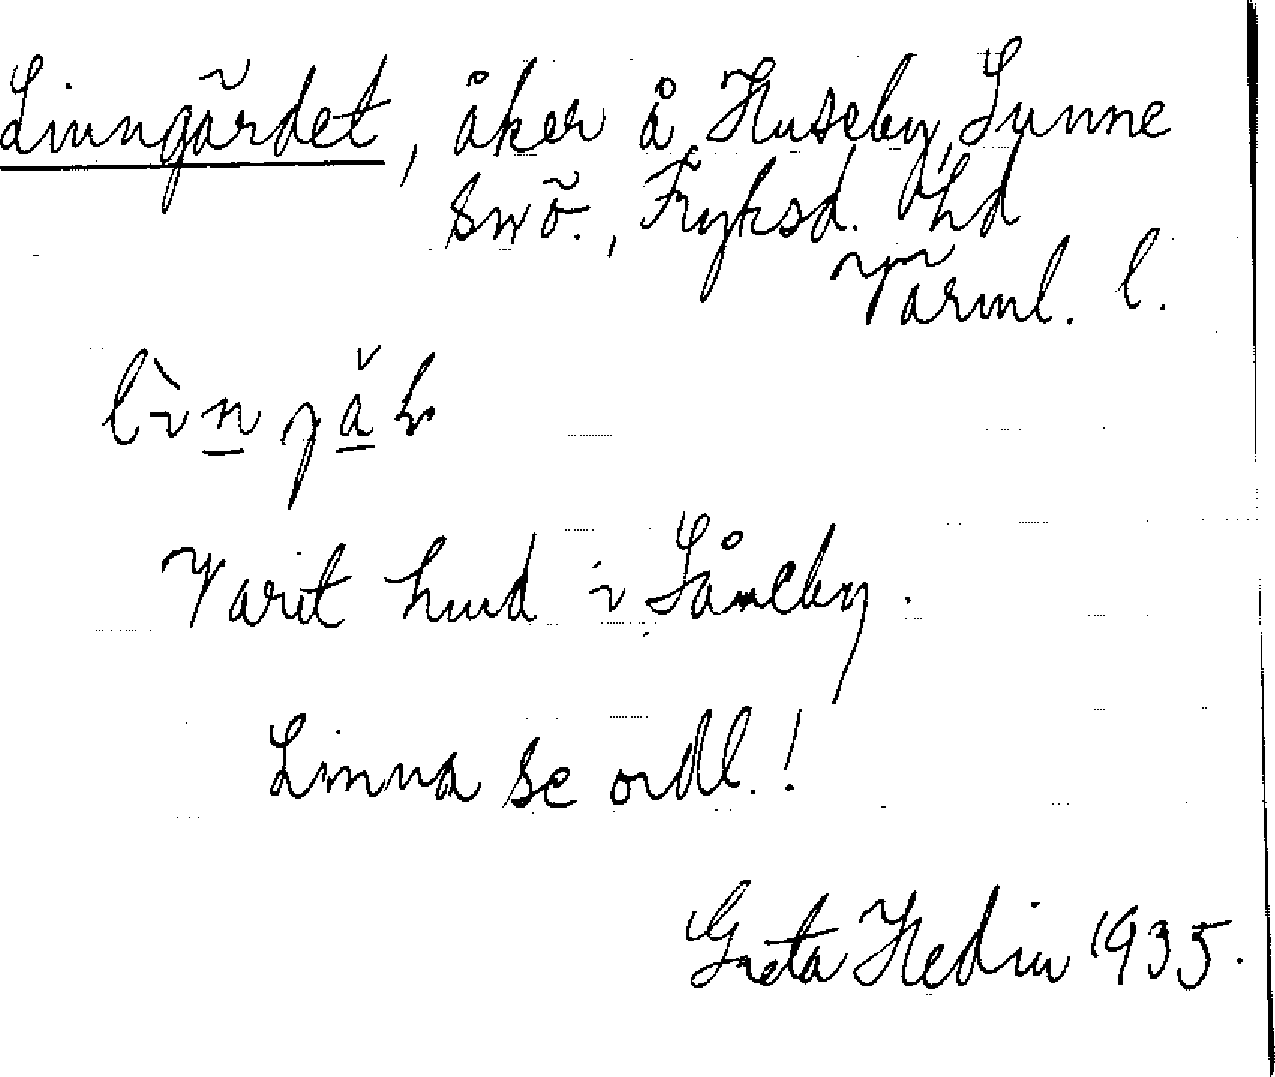 Linngärdet, åker å Huseby, Sunne
snö., Fryksd. hd
Värml. l.
Varit lund i Såneby.
Linna se ordl.!
Greta Hedin 1935.